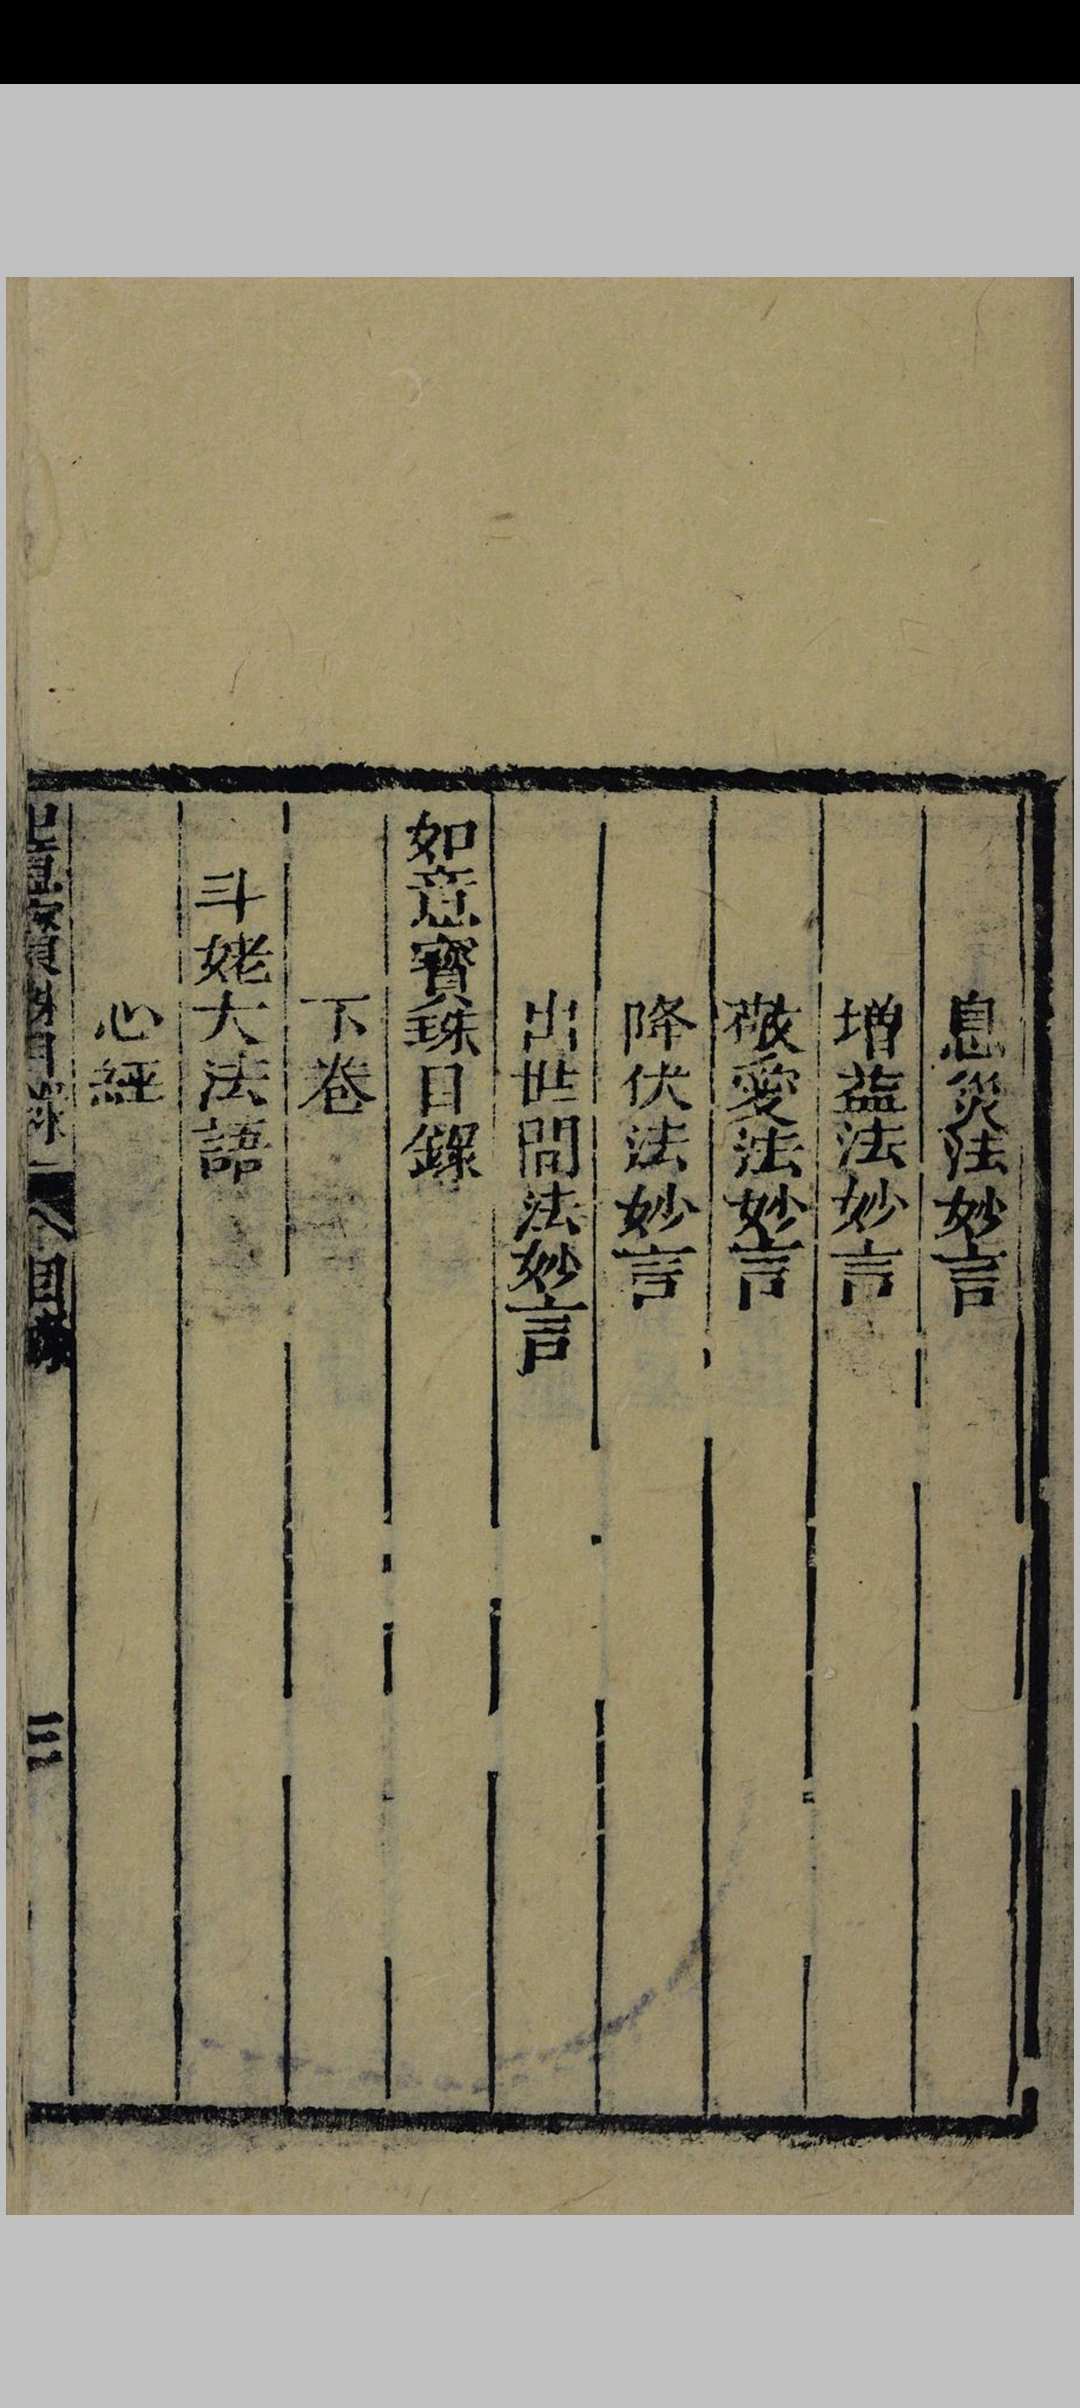 息災法妙言
增益法妙言
敬愛法妙言
降伏法妙言
出世間法妙言
如意寶珠目錄
下卷
斗姥大法語
心經
目錄
三